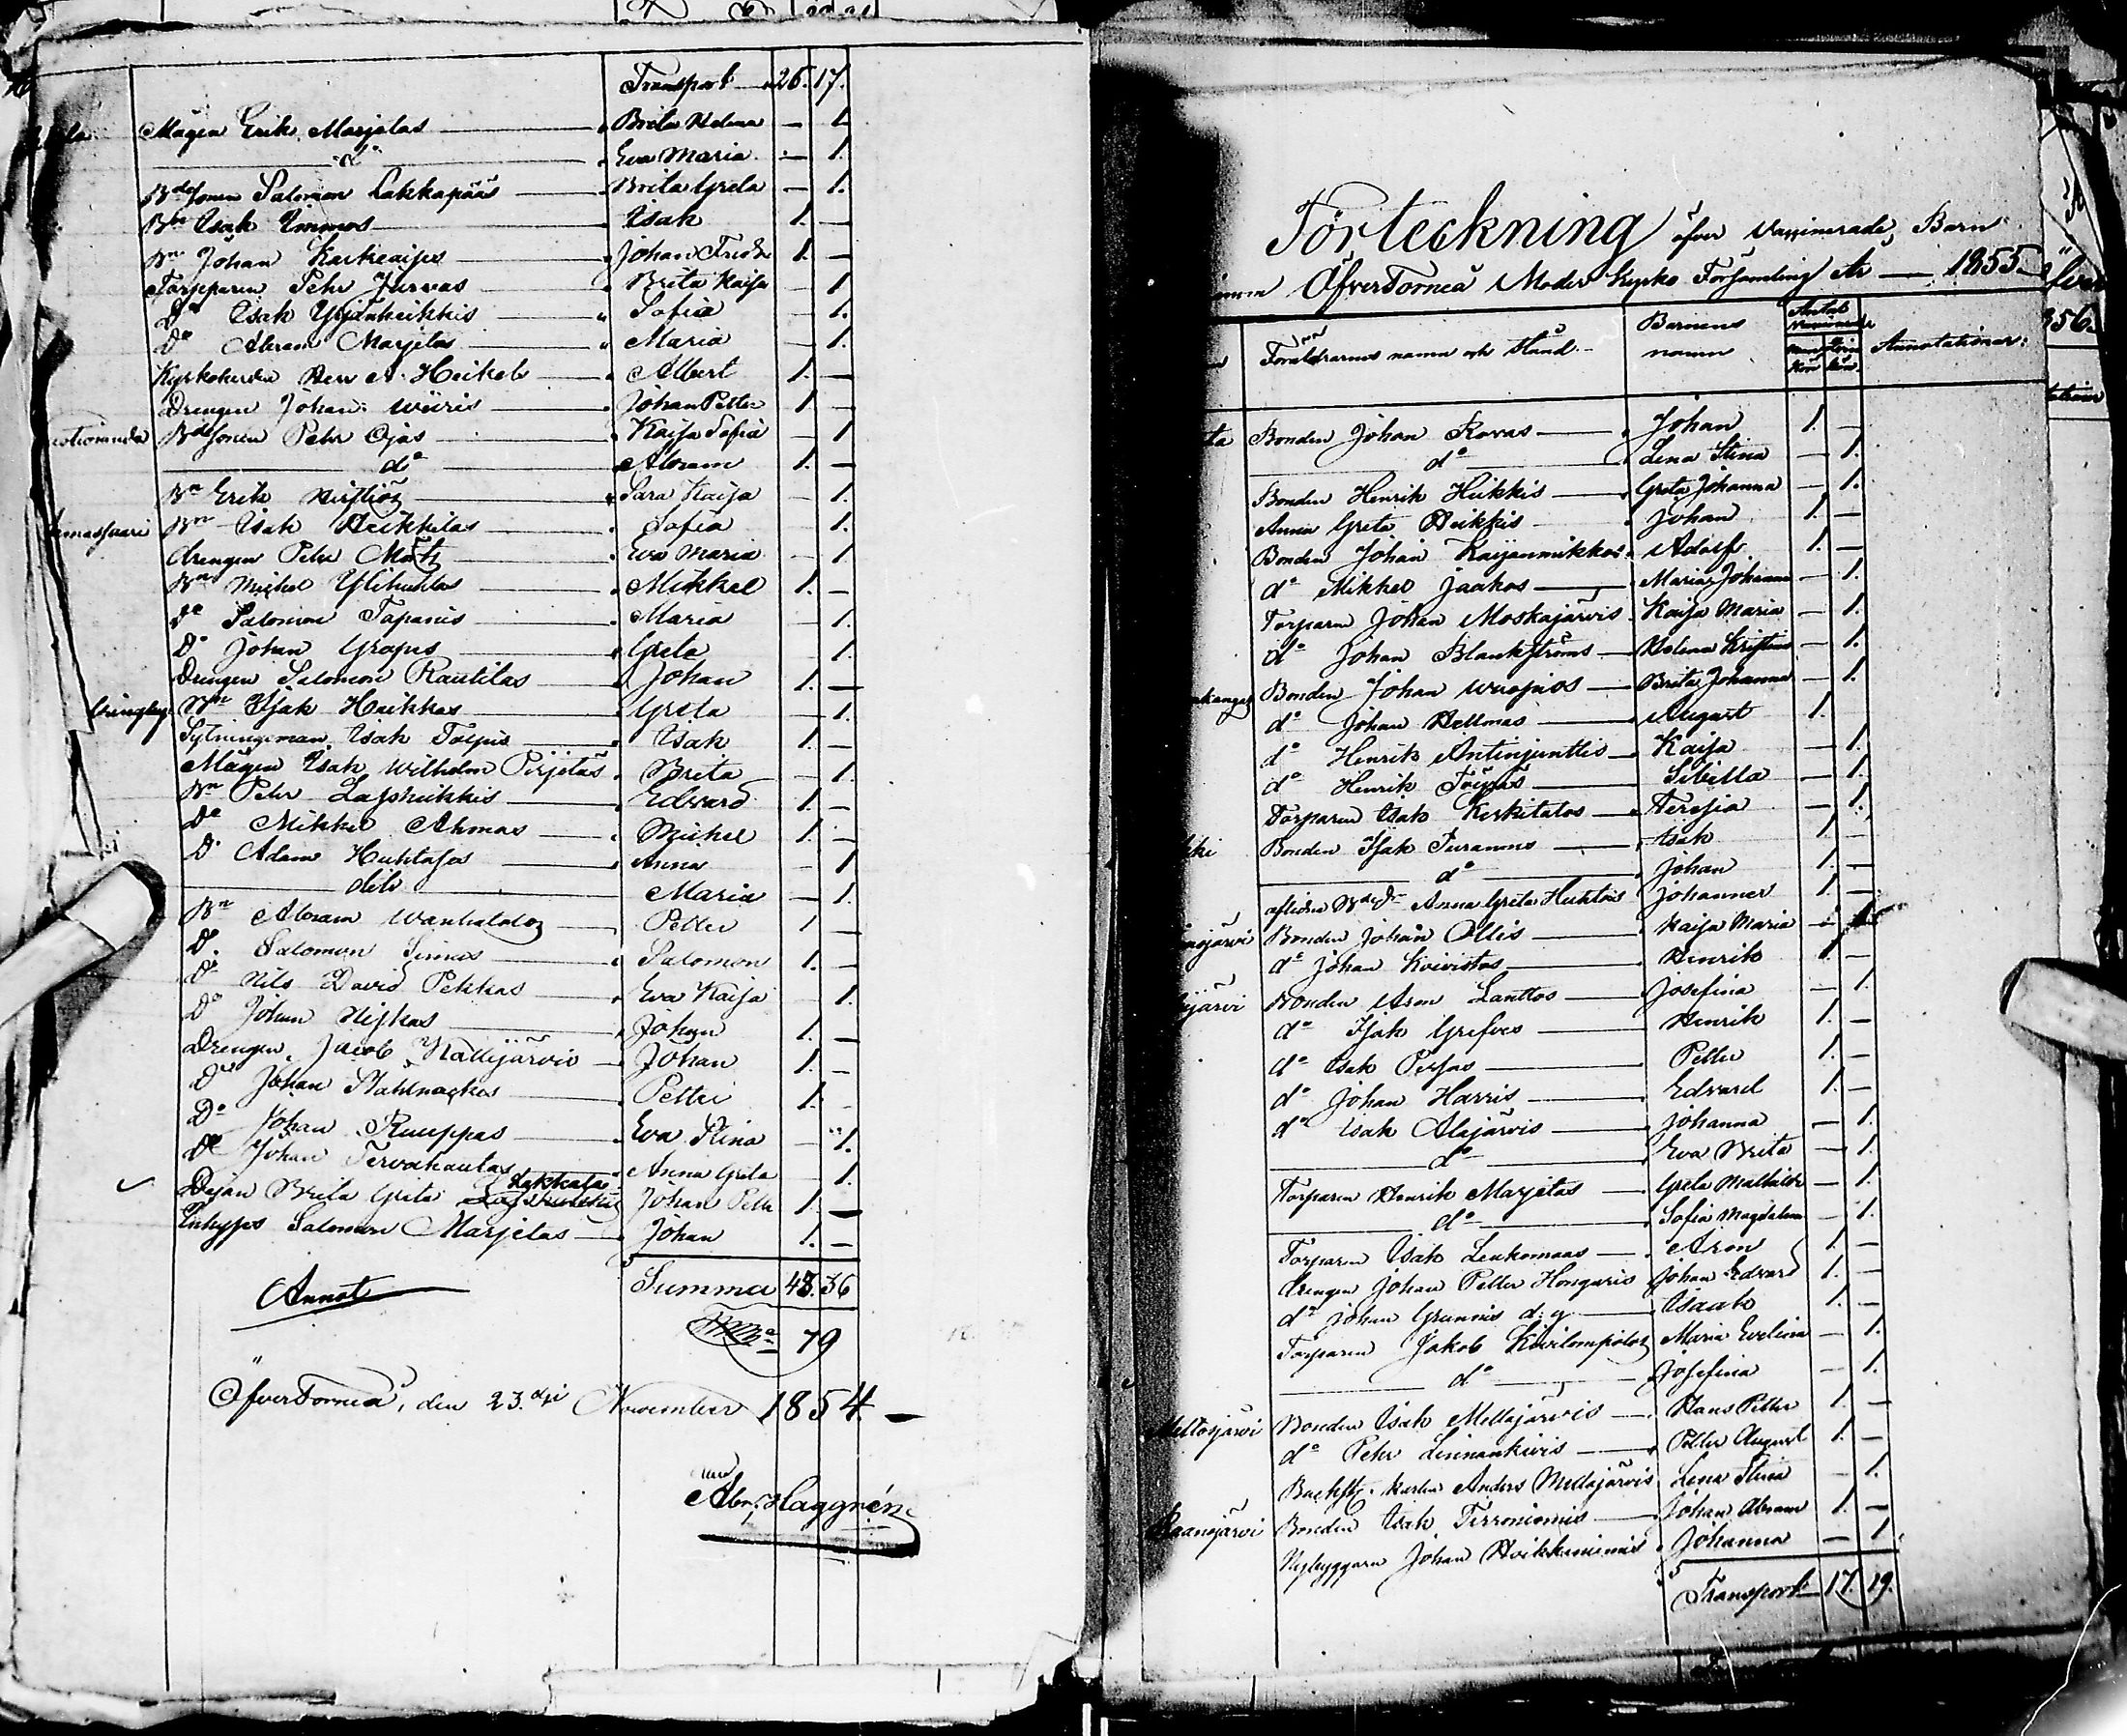 Transport 26. 17.
Mågen Erik Marjetas Brita Helena — 1.
d:o Eva Maria — 1.
Bdsonen Salomon Lakkapääs Brita Greta — 1.
Bn Isak Immos Isak 1. —
Bn Johan Johan Fredr 1. —
Torpparen Pehr Jurvas Brita Kaisa — 1
Do Isak Yrjänheikkis Sofia — 1.
Do Abram Marjetas Maria — 1.
Kyrkoherden Herr A. Heikel Albert 1. —
Drengen Johan Wiiris Johan Petter 1. —
Bdsonen Pehr Ojas Kaisa Sofia — 1
do Abram 1. —
Bn Erik Sara Kaisa — 1.
Bn Isak Heikkilas Sofia — 1.
drengen Pehr Eva Maria — 1
Bn Michel Mikkel 1. —
Do Salomon Tapanis Maria — 1.
Do Johan Grapes Greta — 1.
Drengen Salomon Rautilas Johan 1. —
Bn Isak Heikkas Greta — 1.
Sytningsman Isak Isak 1. —
Mågen Isak Wilhelm Pirjetas Brita — 1.
Bn Pehr Lassheikkis Edvard 1. —
Do Mikkel Ahmas Michel 1. —
Do Adam Huhtasa Anna — 1
dito Maria — 1.
Bn Abram Wanhatalos Petter 1 —
Do Salomon Simas Salomon 1. —
Do Nils David Pekkas Eva Kaisa — 1.
Do Johan Niskas Johan 1. —
Drengen Jacob Kallijärvis Johan 1. —
Do Johan Stahlnackes Petter 1. —
Do Johan Ruuppas Eva Stina — 1.
Do Johan Tervahautas Anna Greta — 1.
Pigan Brita Greta Lakkala Johan Pettr 1. —
Inhyses Salomon Marjetas Johan 1. —
Summa 43. 36
79
Annot
ÖfverTorneå, den 23.dje November 1854. —
Abr. Haggrén
Förteckning öfver Vaccinerade Barn
inom ÖfverTorneå Moder Kyrko Församling År — 1855
Föräldrarnes namn och stånd Barnens namn Antal Vaccinerade Man Kön Qvin kön Annotationer:
Bonden Johan Rovas Johan 1. —
do Lena Stina — 1.
Bonden Henrik Heikkis Greta Johanna — 1.
Anna Greta Heikkis Johan 1. —
Bonden Johan Kaijanmikkos Adolf 1. —
do Mikkel Jaakos Maria Johanna — 1.
Torparen Johan Moskajärvis Kaisa Maria — 1.
do Johan Blankströms Helena Kristina — 1.
Bonden Johan Wuojnos Brita Johanna — 1.
do Johan Hellmas August 1.
do Henrik Antinjunttis Kaisa — 1.
do Henrik Sibilla — 1.
Torparen Isak Keskitalos Teresia — 1.
Bonden Isak Turamus Isak 1 —
do Johan 1. —
aflidna Anna Greta Huhtais Johannes 1. —
Bonden Johan Ollis Kaisa Maria — 1.
do Johan Koivistos Henrik 1. —
järvi Bonden Aron Lanttos Josefina — 1.
do Isak Grefves Henrik 1. —
do Isak Persas Petter 1. —
do Johan Harris Edvard 1. —
do Isak Alajärvis Johanna — 1.
do Eva Brita — 1.
Torparen Henrik Marjetas Greta Mathilda — 1.
do Sofia Magdalena — 1.
Torparen Isak Leukomaas Aron 1. —
drengen Johan Petter Hongaris Johan Edvard 1. —
do Johan Grannis d: y Isaak 1. —
Torparen Jakob Kivilompolos Maria Evelina — 1.
do Josefina — 1.
Meltosjärvi Bonden Isak Mellajärvis Hans Petter 1. —
do Pehr Linnankivis Petter August 1. —
Backstu karlen Anders Mellajärvis Lena Stina — 1.
Raanojärvi Bonden Isak Terroniemis Johan Abram 1. —
Nybyggaren Johan Heikkiniemis Johanna — 1.
Transport 17. 19.